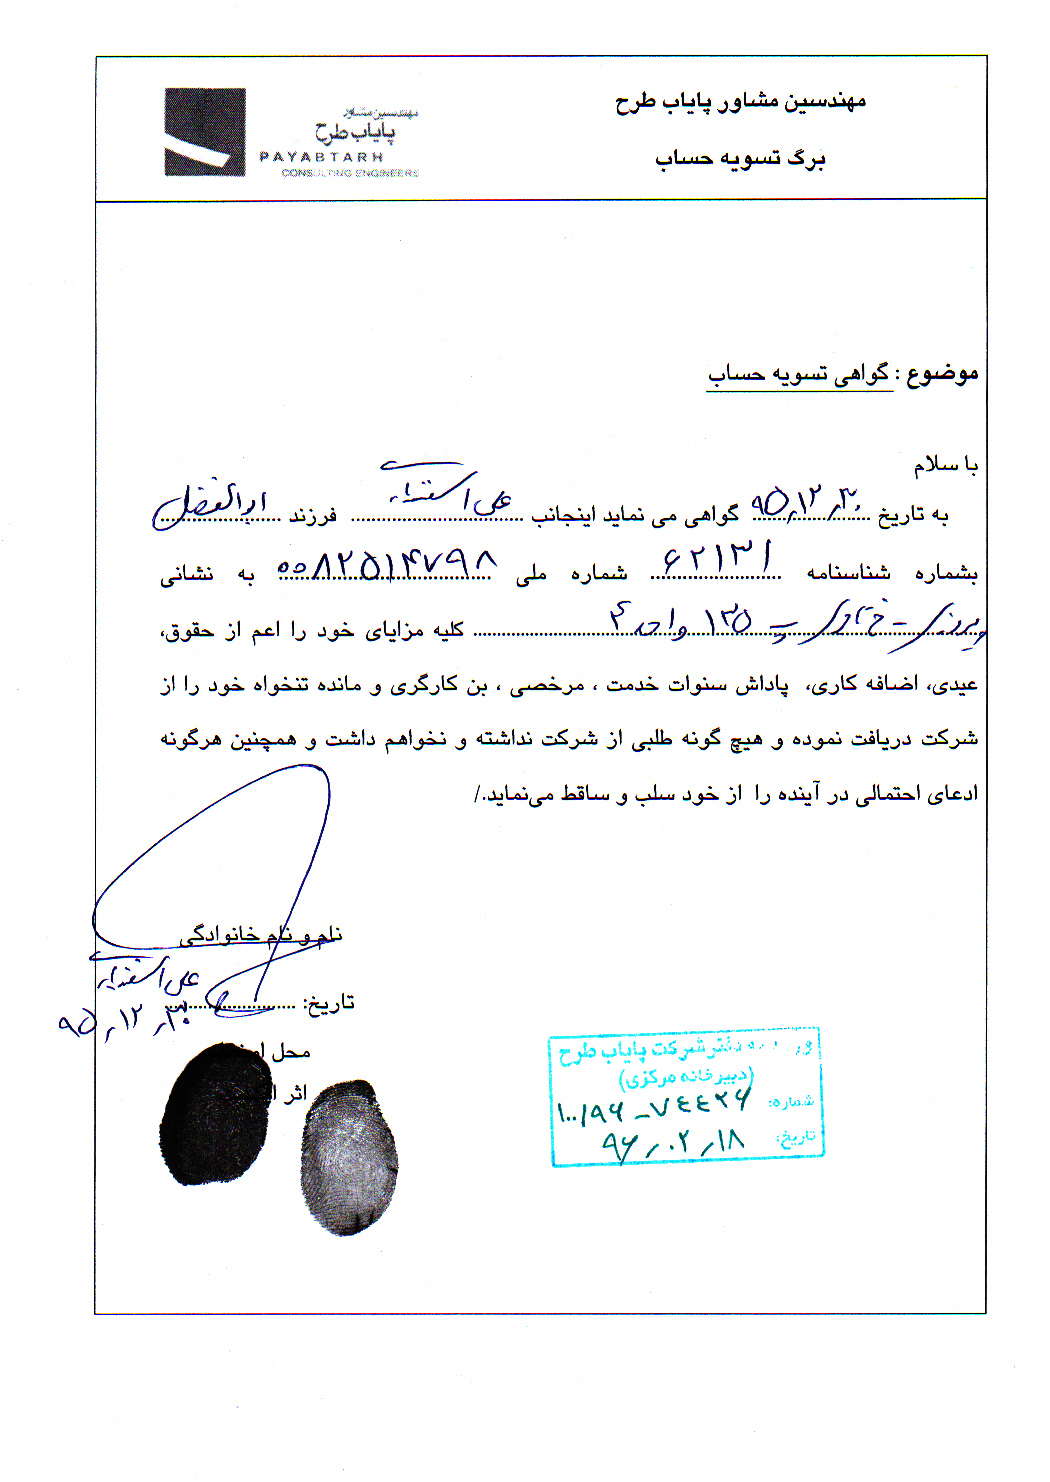 مهندسین مشاور پایاب طرح
برگ تسویه حساب
مهندسین مشاور
پایاب طرح
PAYABTARH
CONSULTING ENGINEERS
موضوع : گواهی تسویه حساب
با سلام
به تاریخ ۹۵٫۱۲٫۳۰ گواهی می نماید اینجانب علی فرزند ابوالفضل
بشماره شناسنامه ۶۲۱۳۱ شماره ملی ۰۰۸۲۵۱۴۷۹۸ به نشانی
پیروزی - خ پ ۱۳۵ واحد ۴ کلیه مزایای خود را اعم از حقوق،
عیدی، اضافه کاری، پاداش سنوات خدمت ، مرخصی ، بن کارگری و مانده تنخواه خود را از
شرکت دریافت نموده و هیچ گونه طلبی از شرکت نداشته و نخواهم داشت و همچنین هرگونه
ادعای احتمالی در آینده را از خود سلب و ساقط می‌نماید./
نام و نام خانوادگی
علی
تاریخ: ۹۵٫۱۲٫۳۰
محل
اثر
دفتر شرکت پایاب طرح
(دبیرخانه مرکزی)
شماره: ۱۰۰/۹۶-۷۴۴۲۶
تاریخ: ۹۶٫۰۲٫۱۸